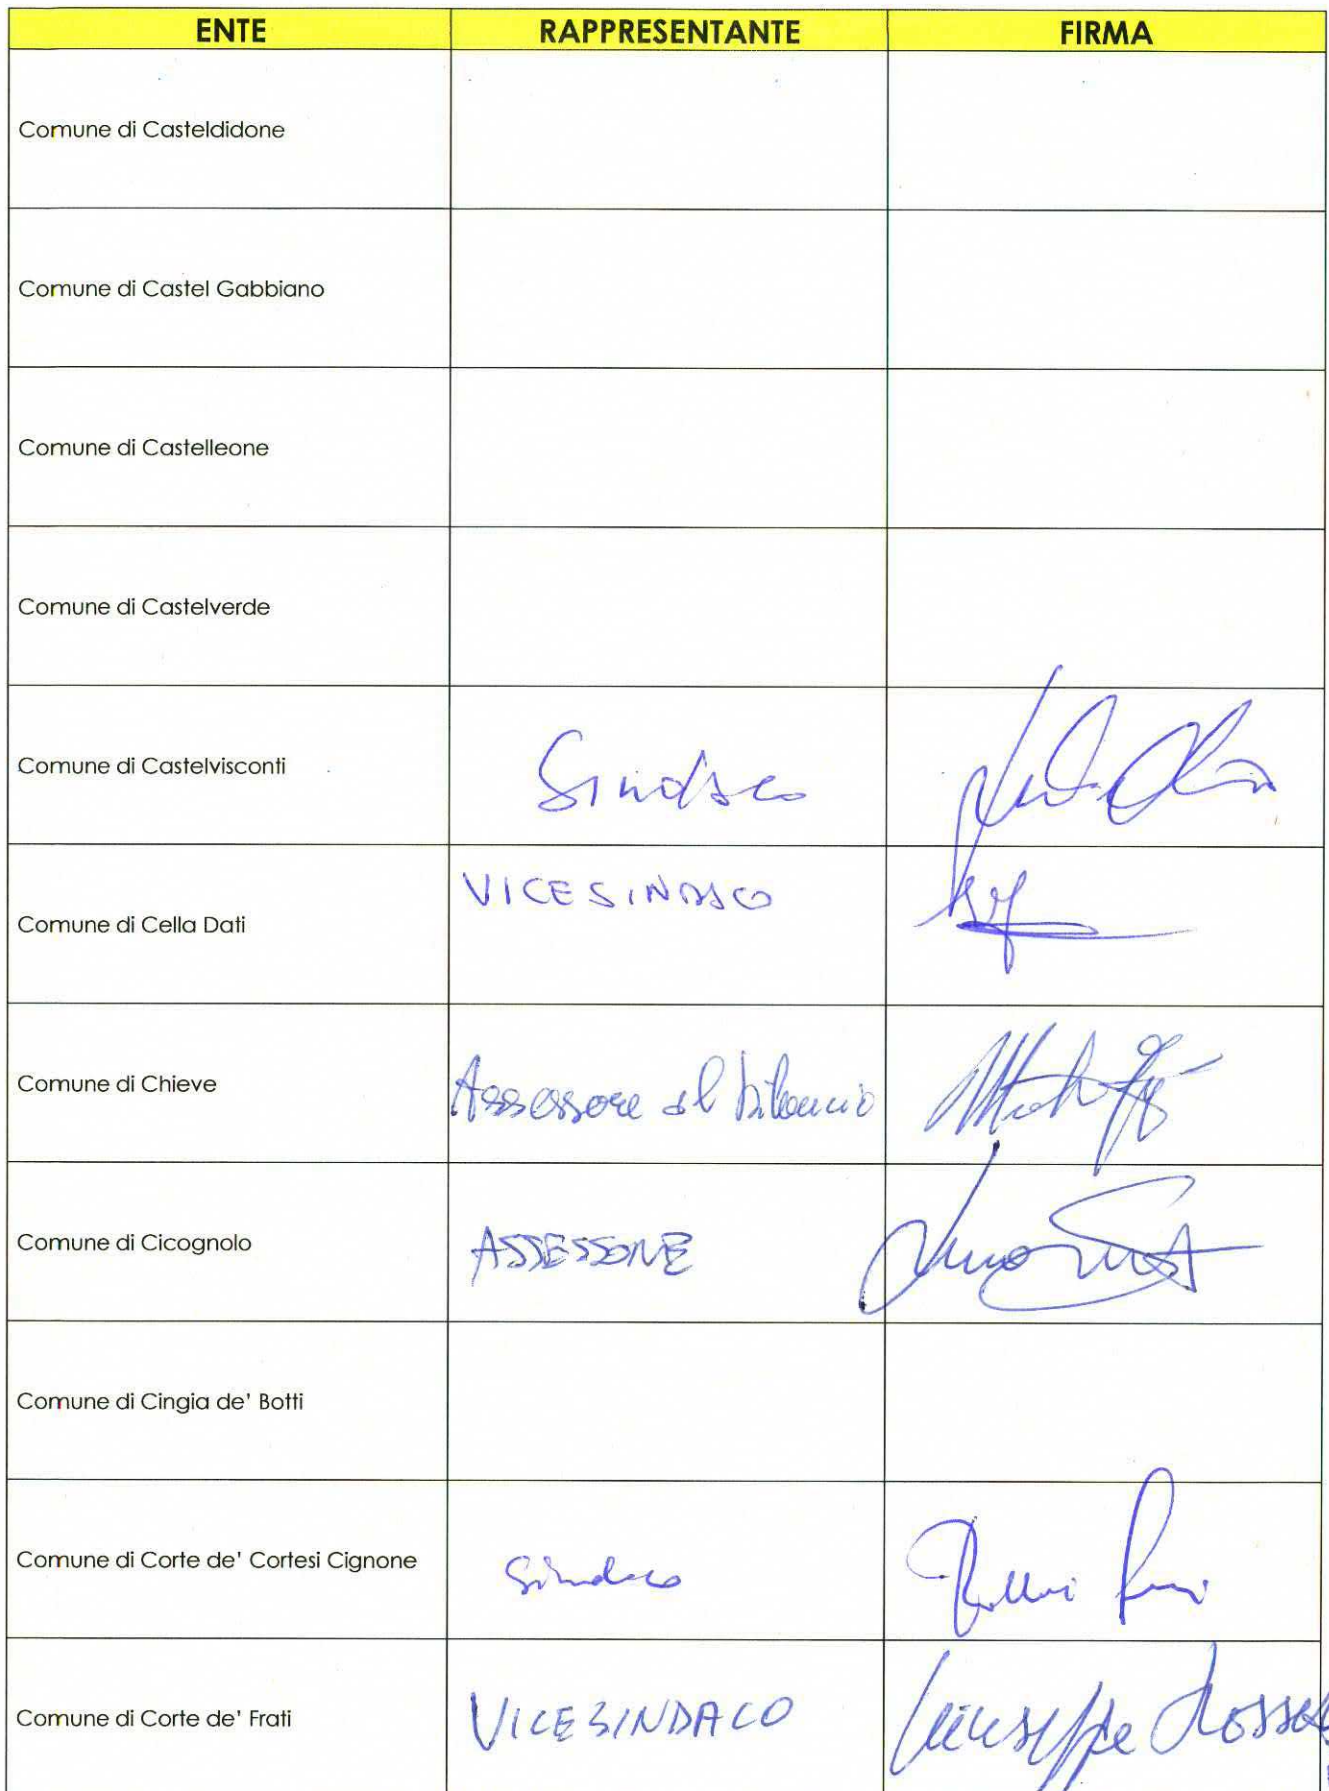 ENTE RAPPRESENTANTE FIRMA
Comune di Casteldidone
Comune di Castel Gabbiano
Comune di Castelleone
Comune di Castelverde
Comune di Castelvisconti Sindaco
Comune di Cella Dati VICESINDACO
Comune di Chieve Assessore al bilancio
Comune di Cicognolo ASSESSORE
Comune di Cingia de' Botti
Comune di Corte de' Cortesi Cignone Sindaco
Comune di Corte de' Frati VICESINDACO Giuseppe